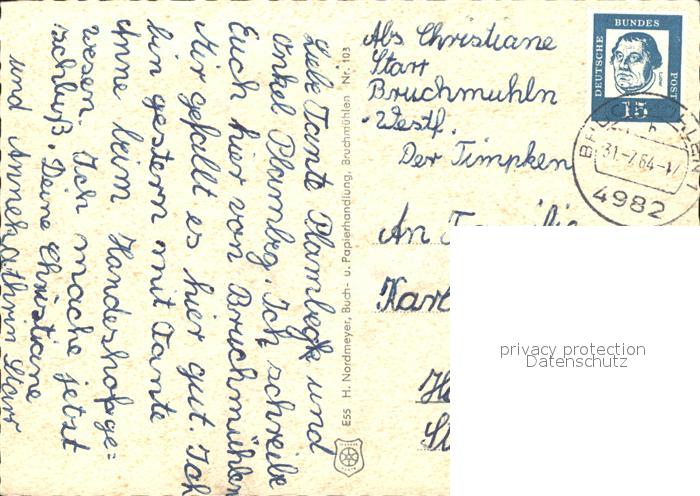 Liebe Tante Plambegk und
Onkel Plambeg. Ich schreibe
Euch hier von Bruchmühlen
Mir gefällt es hier gut. Ich
bin gestern mit Tante
Anne beim Handeshofge=
wesen. Ich mache jetzt
schluß. Deine Christiane
und Annekathrin Starr
E55 H. Nordmeyer, Buch- u. Papierhandlung, Bruchmühlen Nr. 103
Abs. Christiane
Starr
Bruchmuhln
-Westf.
Der Timpken
An Familie
Karl
DEUTSCHE
BUNDES
POST
15
31.-7.64.-17
4982
privacy protection
Datenschutz